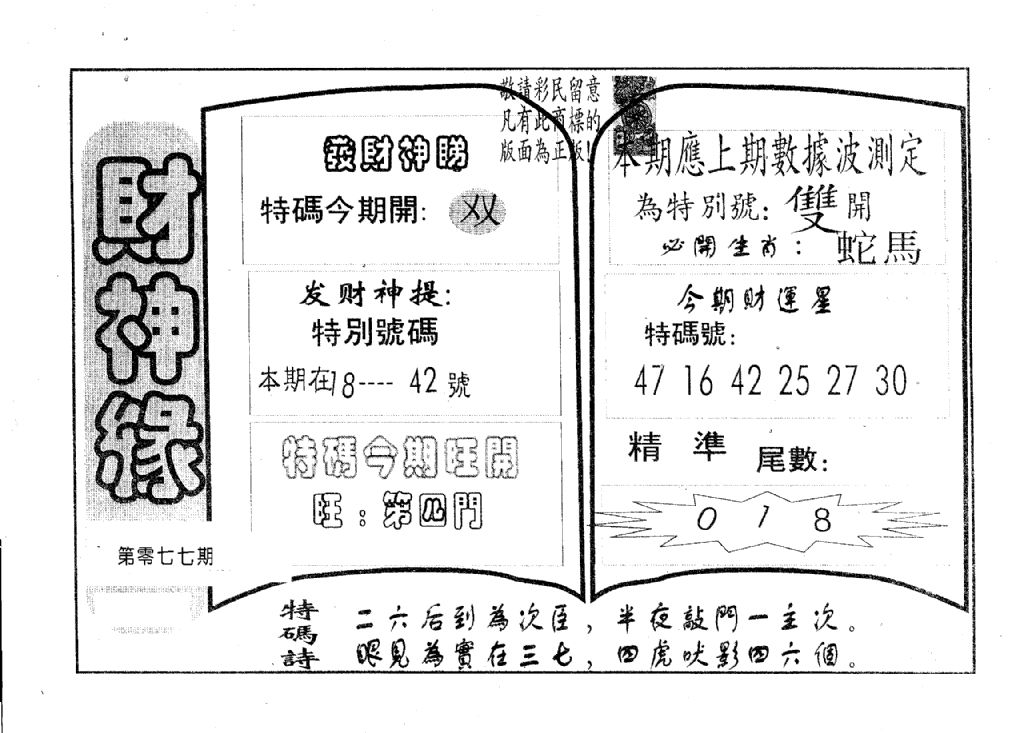 財神緣
第零七七期
敬請彩民留意
凡有此商標的
版面為正版!
發財神睇
特碼今期開: 双
发财神提:
特別號碼
本期在18---- 42 號
特碼今期旺開
旺:第四門
本期應上期數據波測定
為特別號: 雙 開
必開生肖: 蛇馬
今期財運星
特碼號:
47 16 42 25 27 30
精 準 尾數:
0 1 8
特碼詩
二六后到為次臣,半夜敲門一主次。
眼見為實在三七,四虎吠影四六個。